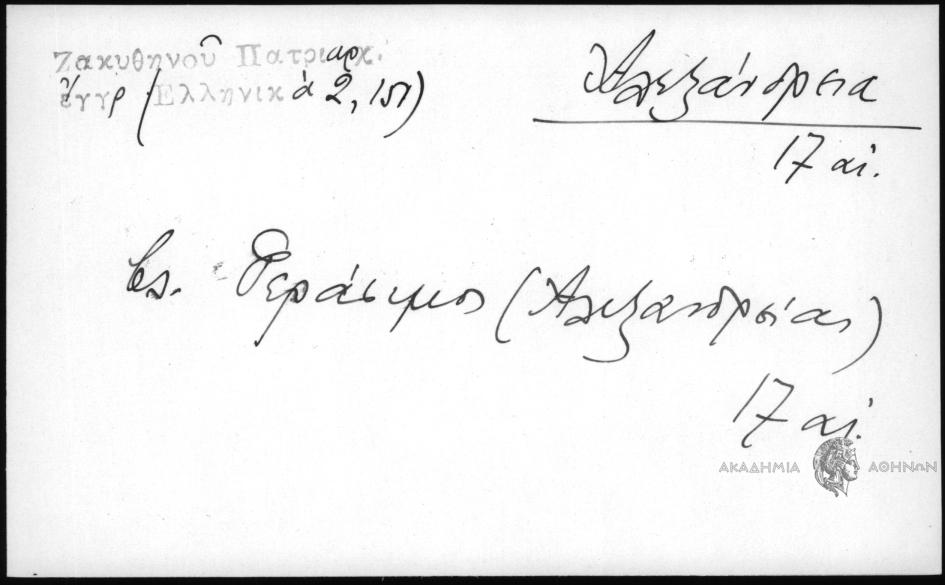 Ζακυθηνοῦ Πατριαρχ.
ἔγγρ (Ἑλληνικά 2, 151)
Ἀλεξάνδρεια
17 αἰ.
βλ. Γεράσιμος (Ἀλεξανδρείας)
17 αἰ.
ΑΚΑΔΗΜΙΑ ΑΘΗΝΩΝ